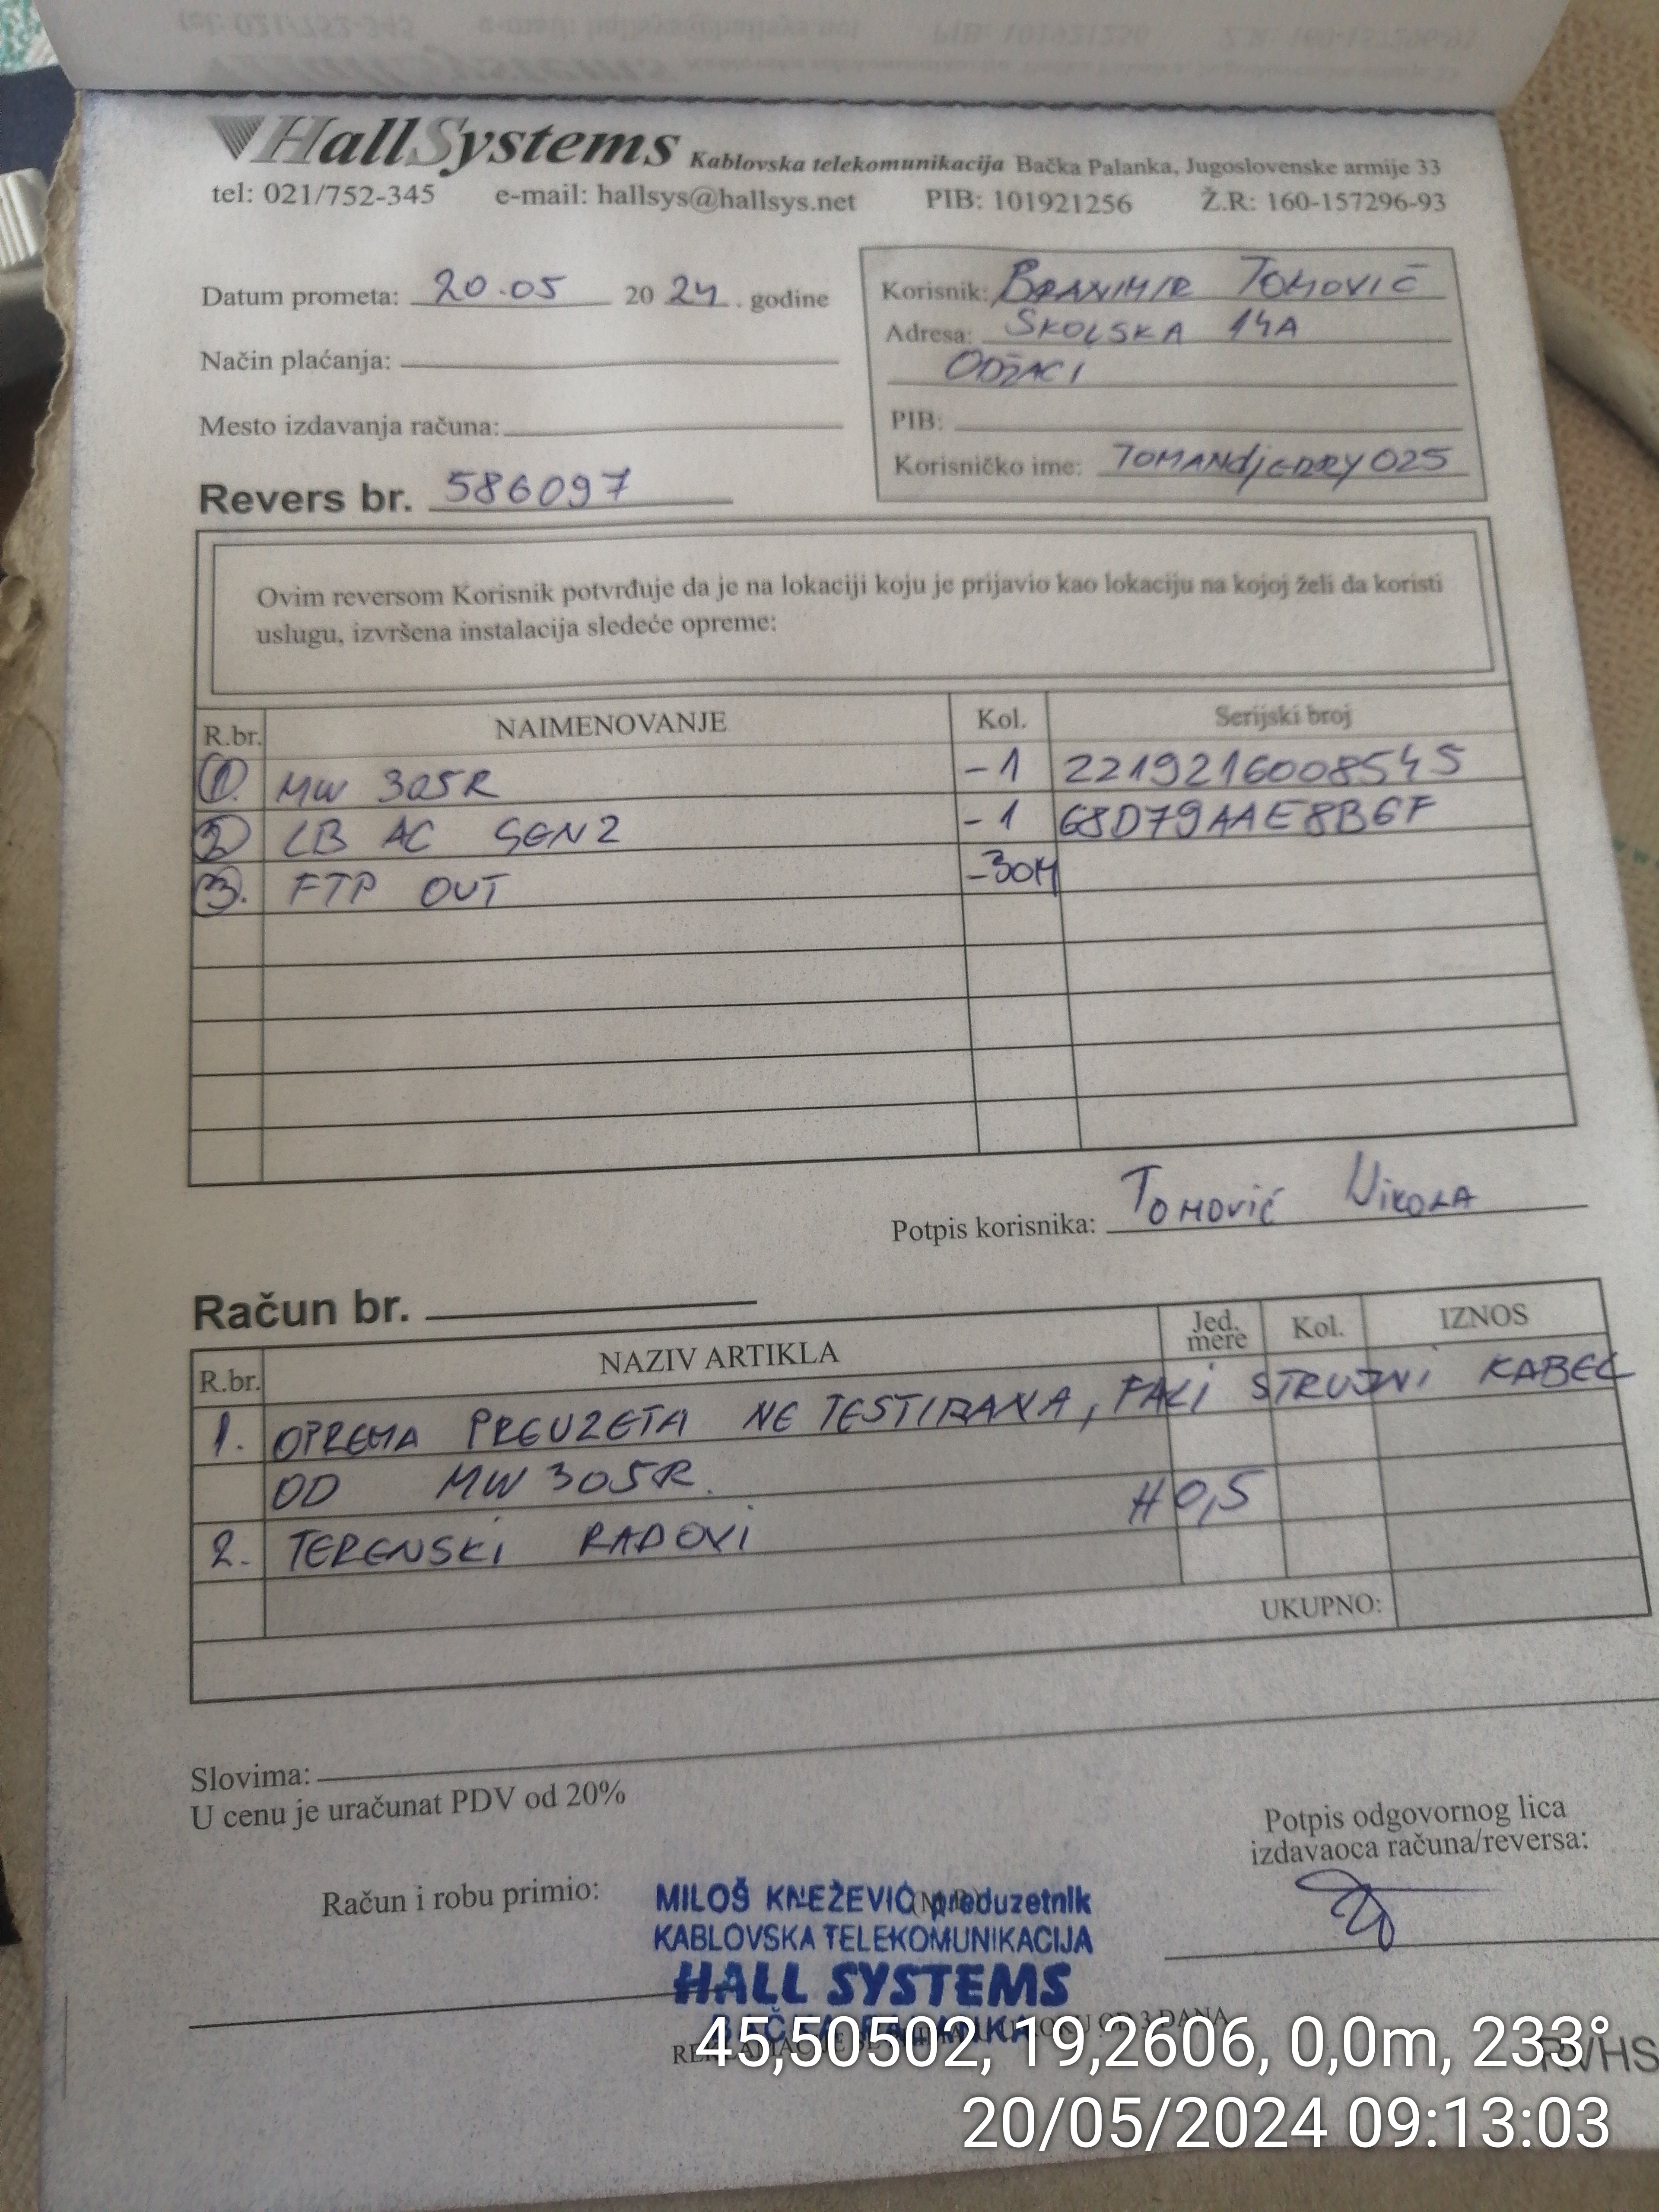 HallSystems Kablovska telekomunikacija Bačka Palanka, Jugoslovenske armije 33
tel: 021/752-345 e-mail: hallsys@hallsys.net PIB: 101921256 Ž.R: 160-157296-93
Datum prometa: 20.05 2024. godine
Način plaćanja:
Mesto izdavanja računa:
Revers br. 586097
Korisnik: BRANIMIR TOMOVIĆ
Adresa: ŠKOLSKA 14A
ODŽACI
PIB:
Korisničko ime: TOMANdjERRY025
Ovim reversom Korisnik potvrđuje da je na lokaciji koju je prijavio kao lokaciju na kojoj želi da koristi
uslugu, izvršena instalacija sledeće opreme:
R.br. NAIMENOVANJE Kol. Serijski broj
1. MW 305R -1 2219216008545
2 LB AC GEN2 -1 68D79AAE8B6F
3. FTP OUT -30M
Potpis korisnika: TOMOVIĆ NIKOLA
Račun br.
R.br. NAZIV ARTIKLA Jed. mere Kol. IZNOS
1. OPREMA PREUZETA NE TESTIRANA, FALI STRUJNI KABEL
OD MW 305R.
2. TERENSKI RADOVI H 0,5
UKUPNO:
Slovima:
U cenu je uračunat PDV od 20%
Potpis odgovornog lica
izdavaoca računa/reversa:
Račun i robu primio:
MILOŠ KNEŽEVIĆ preduzetnik
KABLOVSKA TELEKOMUNIKACIJA
HALL SYSTEMS
45,50502, 19,2606, 0,0m, 233°
20/05/2024 09:13:03